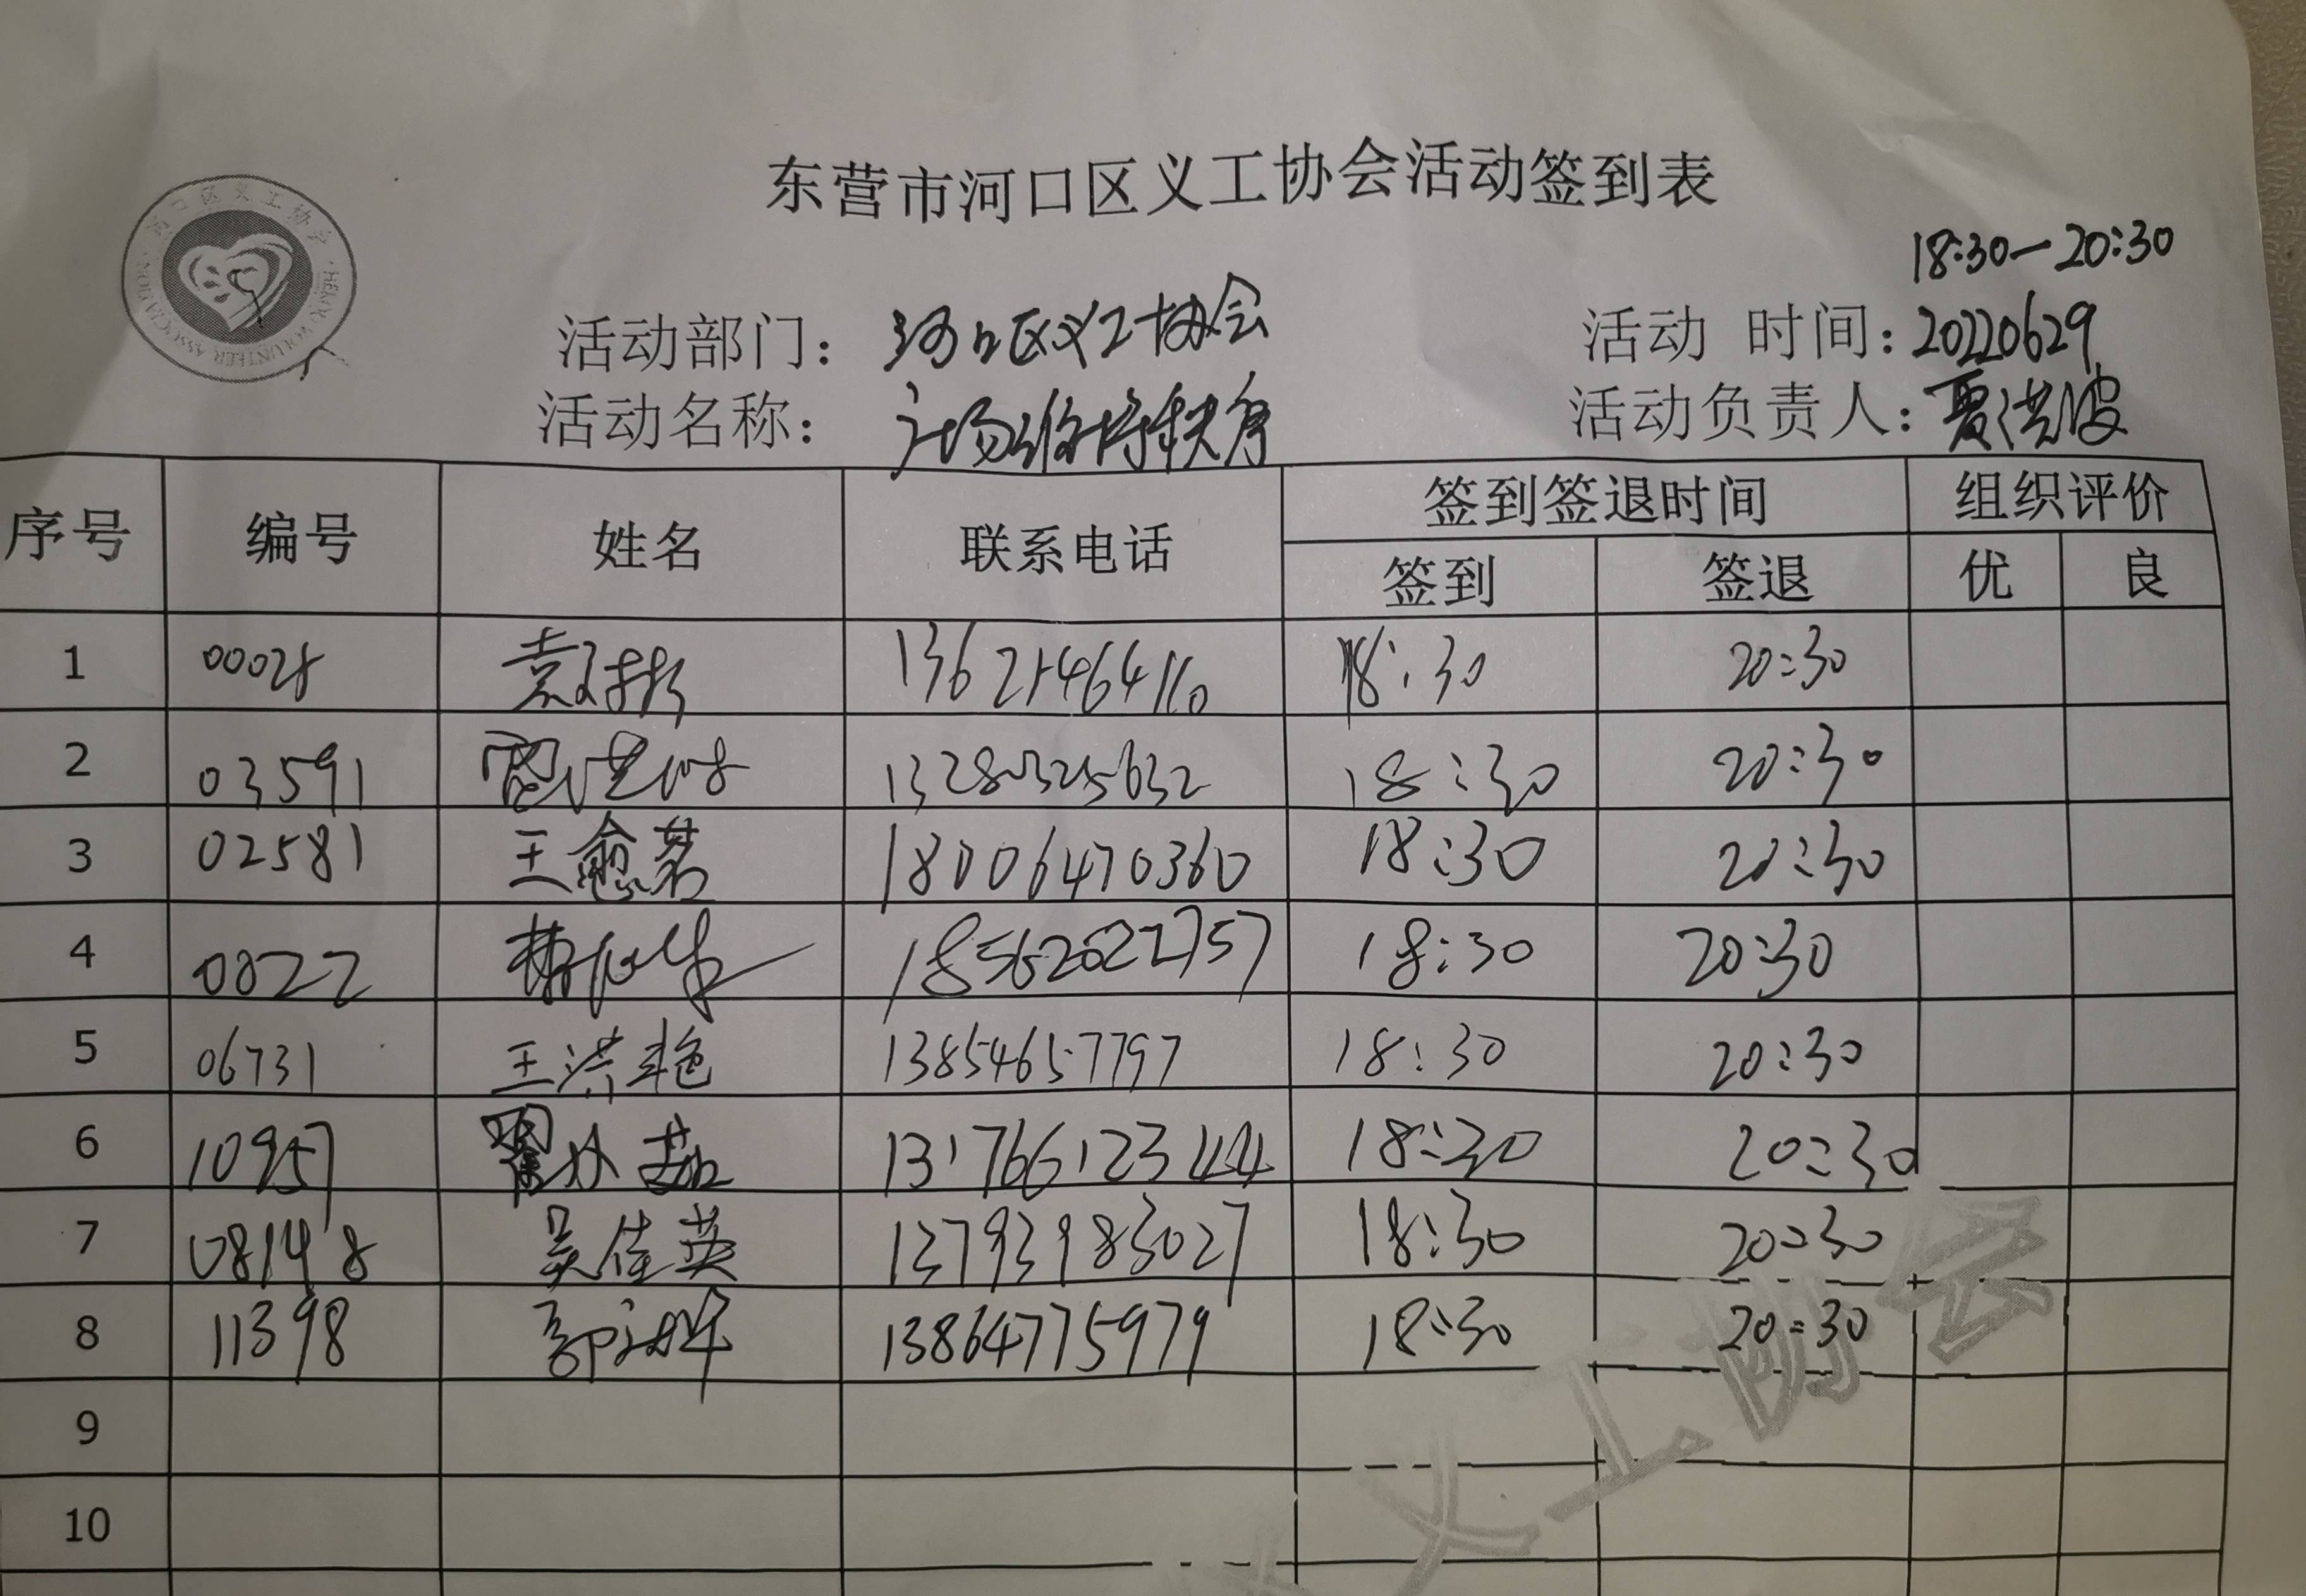 东营市河口区义工协会活动签到表
18:30—20:30
活动部门： 河口区义工协会 活动 时间：20220629
活动名称： 广场维持秩序 活动负责人：贾洪波
序号 编号 姓名 联系电话 签到签退时间 组织评价
签到 签退 优 良
1 00028 18:30 20:30
2 03591 18:30 20:30
3 02581 王愈茗 18006470360 18:30 20:30
4 0822 18562022757 18:30 20:30
5 06731 王洪艳 13854657797 18:30 20:30
6 10957 13176612344 18:30 20:30
7 08148 吴佳英 13793983027 18:30 20:30
8 11398 13864775979 18:30 20:30
9
10
义工协会